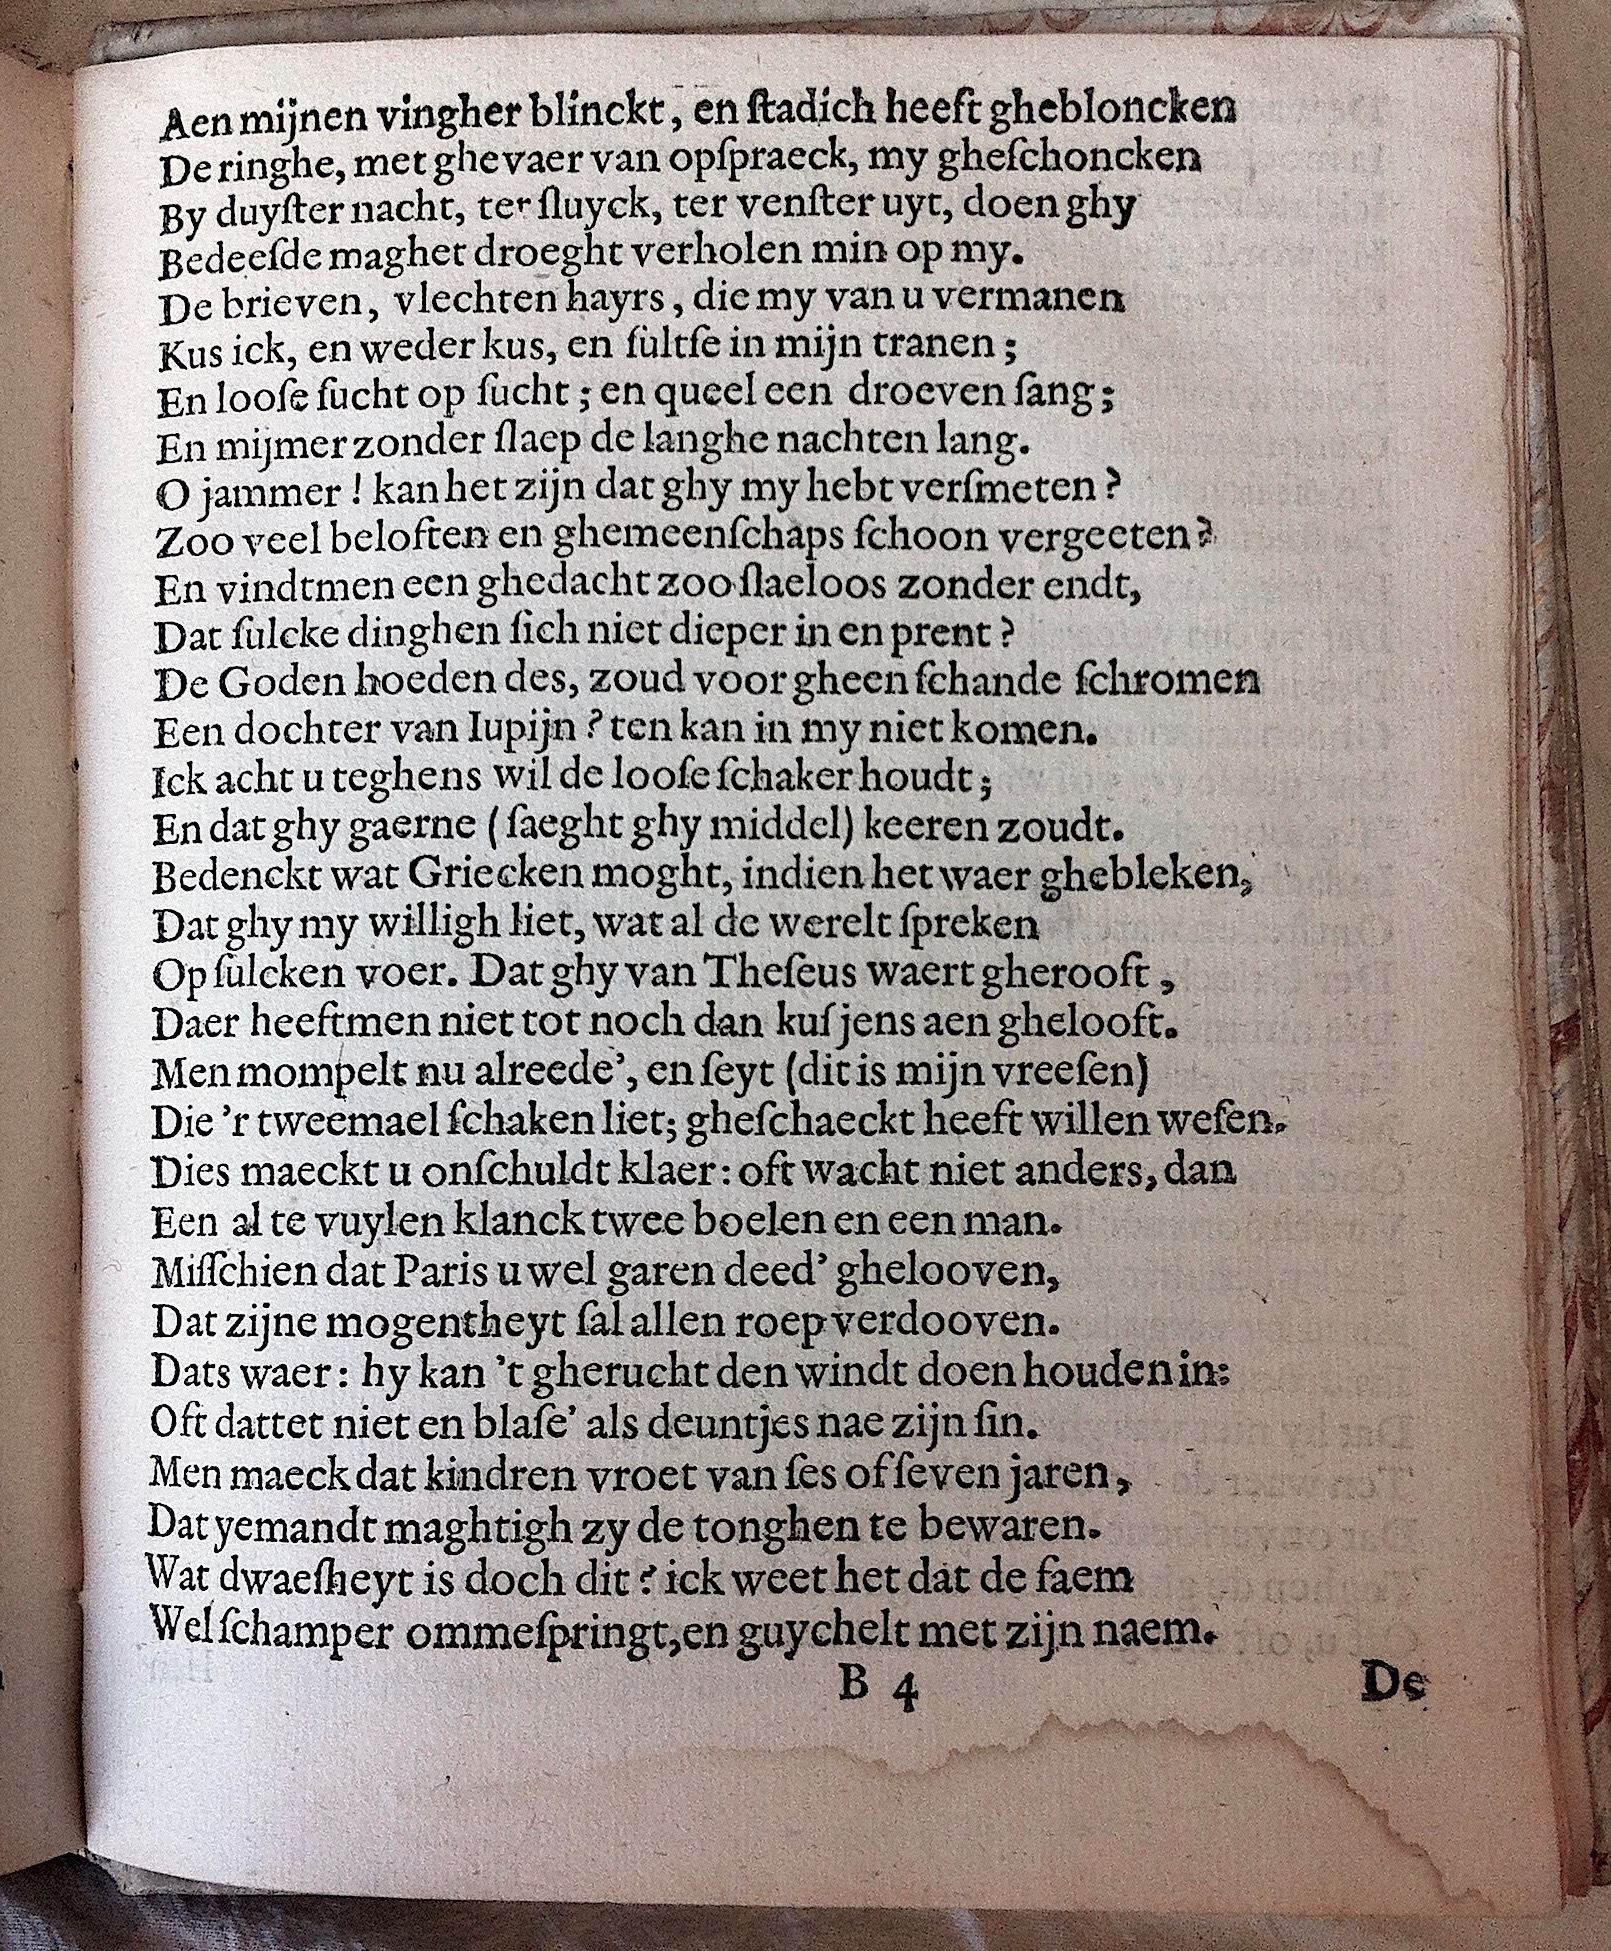 Aen mijnen vingher blinckt, en ſtadich heeft ghebloncken
De ringhe, met ghevaer van opſpraeck, my gheſchoncken
By duyſter nacht, ter ſluyck, ter venſter uyt, doen ghy
Bedeeſde maghet droeght verholen min op my.
De brieven, vlechten hayrs, die my van u vermanen
Kus ick, en weder kus, en ſultſe in mijn tranen;
En looſe ſucht op ſucht; en queel een droeven ſang;
En mijmer zonder ſlaep de langhe nachten lang.
O jammer! kan het zijn dat ghy my hebt verſmeten?
Zoo veel beloften en ghemeenſchaps ſchoon vergeeten?
En vindtmen een ghedacht zoo ſlaeloos zonder endt,
Dat ſulcke dinghen ſich niet dieper in en prent?
De Goden hoeden des, zoud voor gheen ſchande ſchromen
Een dochter van Iupijn? ten kan in my niet komen.
Ick acht u teghens wil de looſe ſchaker houdt;
En dat ghy gaerne (ſaeght ghy middel) keeren zoudt.
Bedenckt wat Griecken moght, indien het waer ghebleken,
Dat ghy my willigh liet, wat al de werelt ſpreken
Op ſulcken voer. Dat ghy van Theſeus waert gherooft,
Daer heeftmen niet tot noch dan kuſjens aen ghelooft.
Men mompelt nu alreede’, en ſeyt (dit is mijn vreeſen)
Die ’r tweemael ſchaken liet; gheſchaeckt heeft willen weſen.
Dies maeckt u onſchuldt klaer: oft wacht niet anders, dan
Een al te vuylen klanck twee boelen en een man.
Miſſchien dat Paris u wel garen deed’ ghelooven,
Dat zijne mogentheyt ſal allen roep verdooven.
Dats waer: hy kan ’t gherucht den windt doen houden in:
Oft dattet niet en blaſe’ als deuntjes nae zijn ſin.
Men maeck dat kindren vroet van ſes of ſeven jaren,
Dat yemandt maghtigh zy de tonghen te bewaren.
Wat dwaeſheyt is doch dit? ick weet het dat de faem
Wel ſchamper ommeſpringt, en guychelt met zijn naem.
B 4 De